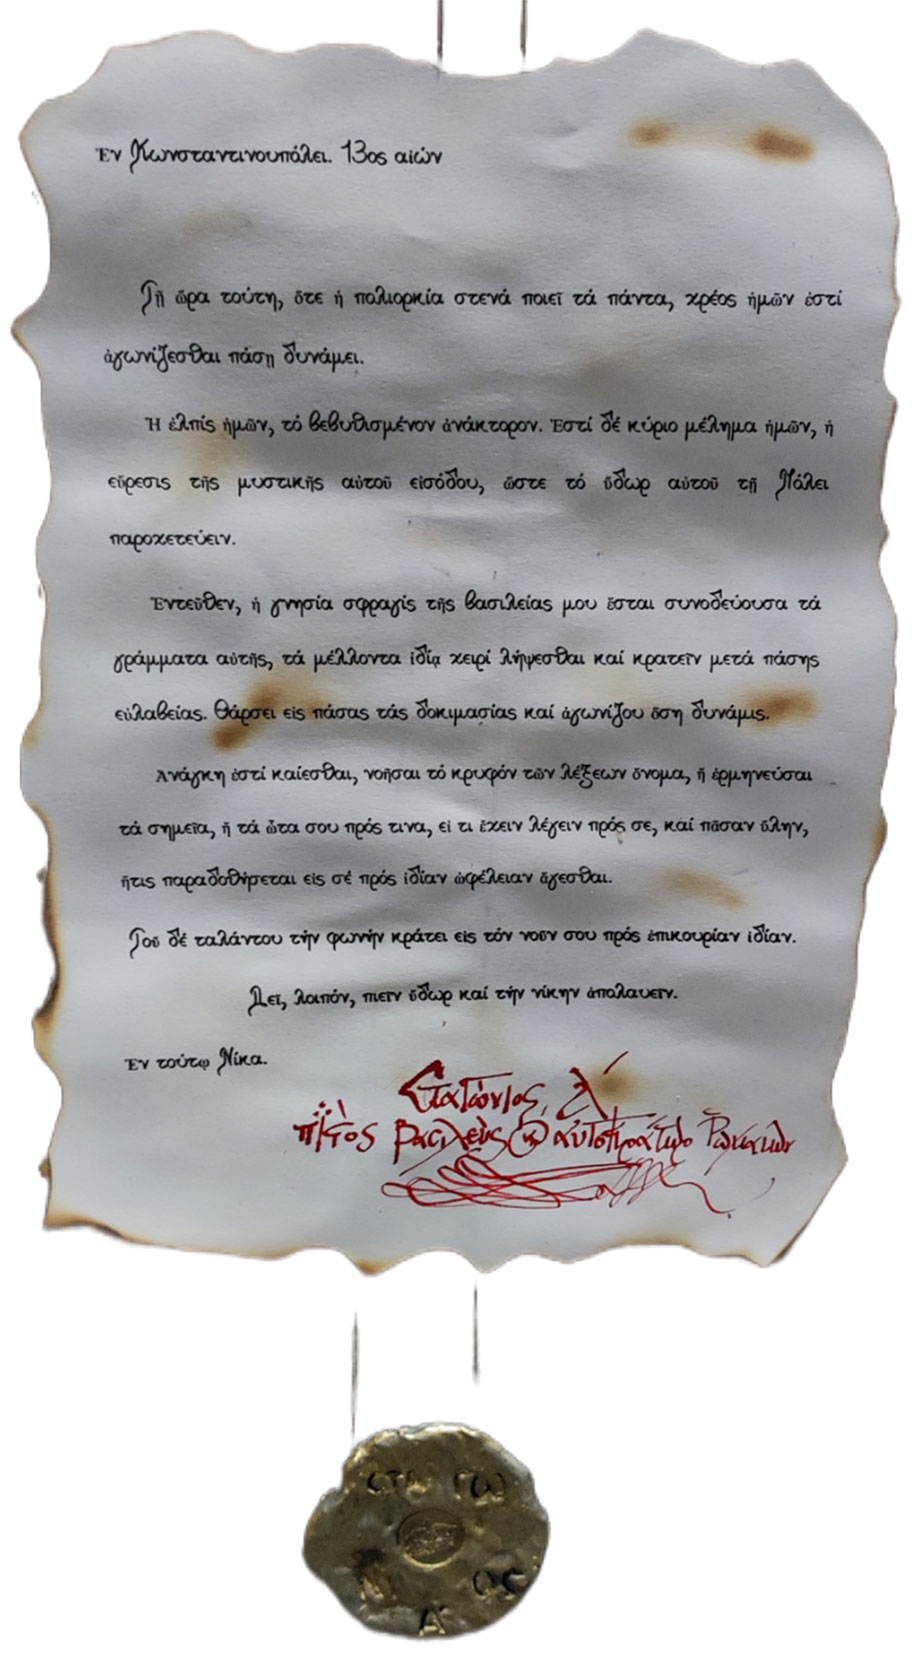 Ἐν Κωνσταντινουπόλει. 13ος αἰών
Τῇ ὥρα τούτῃ, ὅτε ἡ πολιορκία στενά ποιεῖ τά πάντα, χρέος ἡμῶν ἐστί
ἀγωνίζεσθαι πάσῃ δυνάμει.
Ἡ ἐλπίς ἡμῶν, τό βεβυθισμένον ἀνάκτορον. Ἐστί δέ κύριο μέλημα ἡμῶν, ἡ
εὕρεσις τῆς μυστικῆς αὐτοῦ εἰσόδου, ὥστε τό ὕδωρ αὐτοῦ τῇ Πόλει
παροχετεύειν.
Ἐντεῦθεν, ἡ γνησία σφραγίς τῆς βασιλείας μου ἔσται συνοδεύουσα τά
γράμματα αὐτῆς, τά μέλλοντα ἰδίᾳ χειρί λήψεσθαι καί κρατεῖν μετά πάσης
εὐλαβείας. Θάρσει εἰς πάσας τάς δοκιμασίας καί ἀγωνίζου ὅση δυνάμις.
Ἀνάγκη ἐστί καίεσθαι, νοῆσαι τό κρυφόν τῶν λέξεων ὄνομα, ἤ ἑρμηνεύσαι
τά σημεῖα, ἤ τά ὦτα σου πρός τινα, εἰ τι ἔχειν λέγειν πρός σε, καί πᾶσαν ὕλην,
ἥτις παραδοθήσεται εἰς σέ πρός ἰδίαν ὠφέλειαν ἄγεσθαι.
Τοῦ δέ ταλάντου τήν φωνήν κράτει εἰς τόν νοῦν σου πρός ἐπικουρίαν ἰδίαν.
Δεῖ, λοιπόν, πιεῖν ὕδωρ καί τήν νίκην ἀπολαυεῖν.
Ἐν τούτῳ Νίκα.
βασιλεὺς